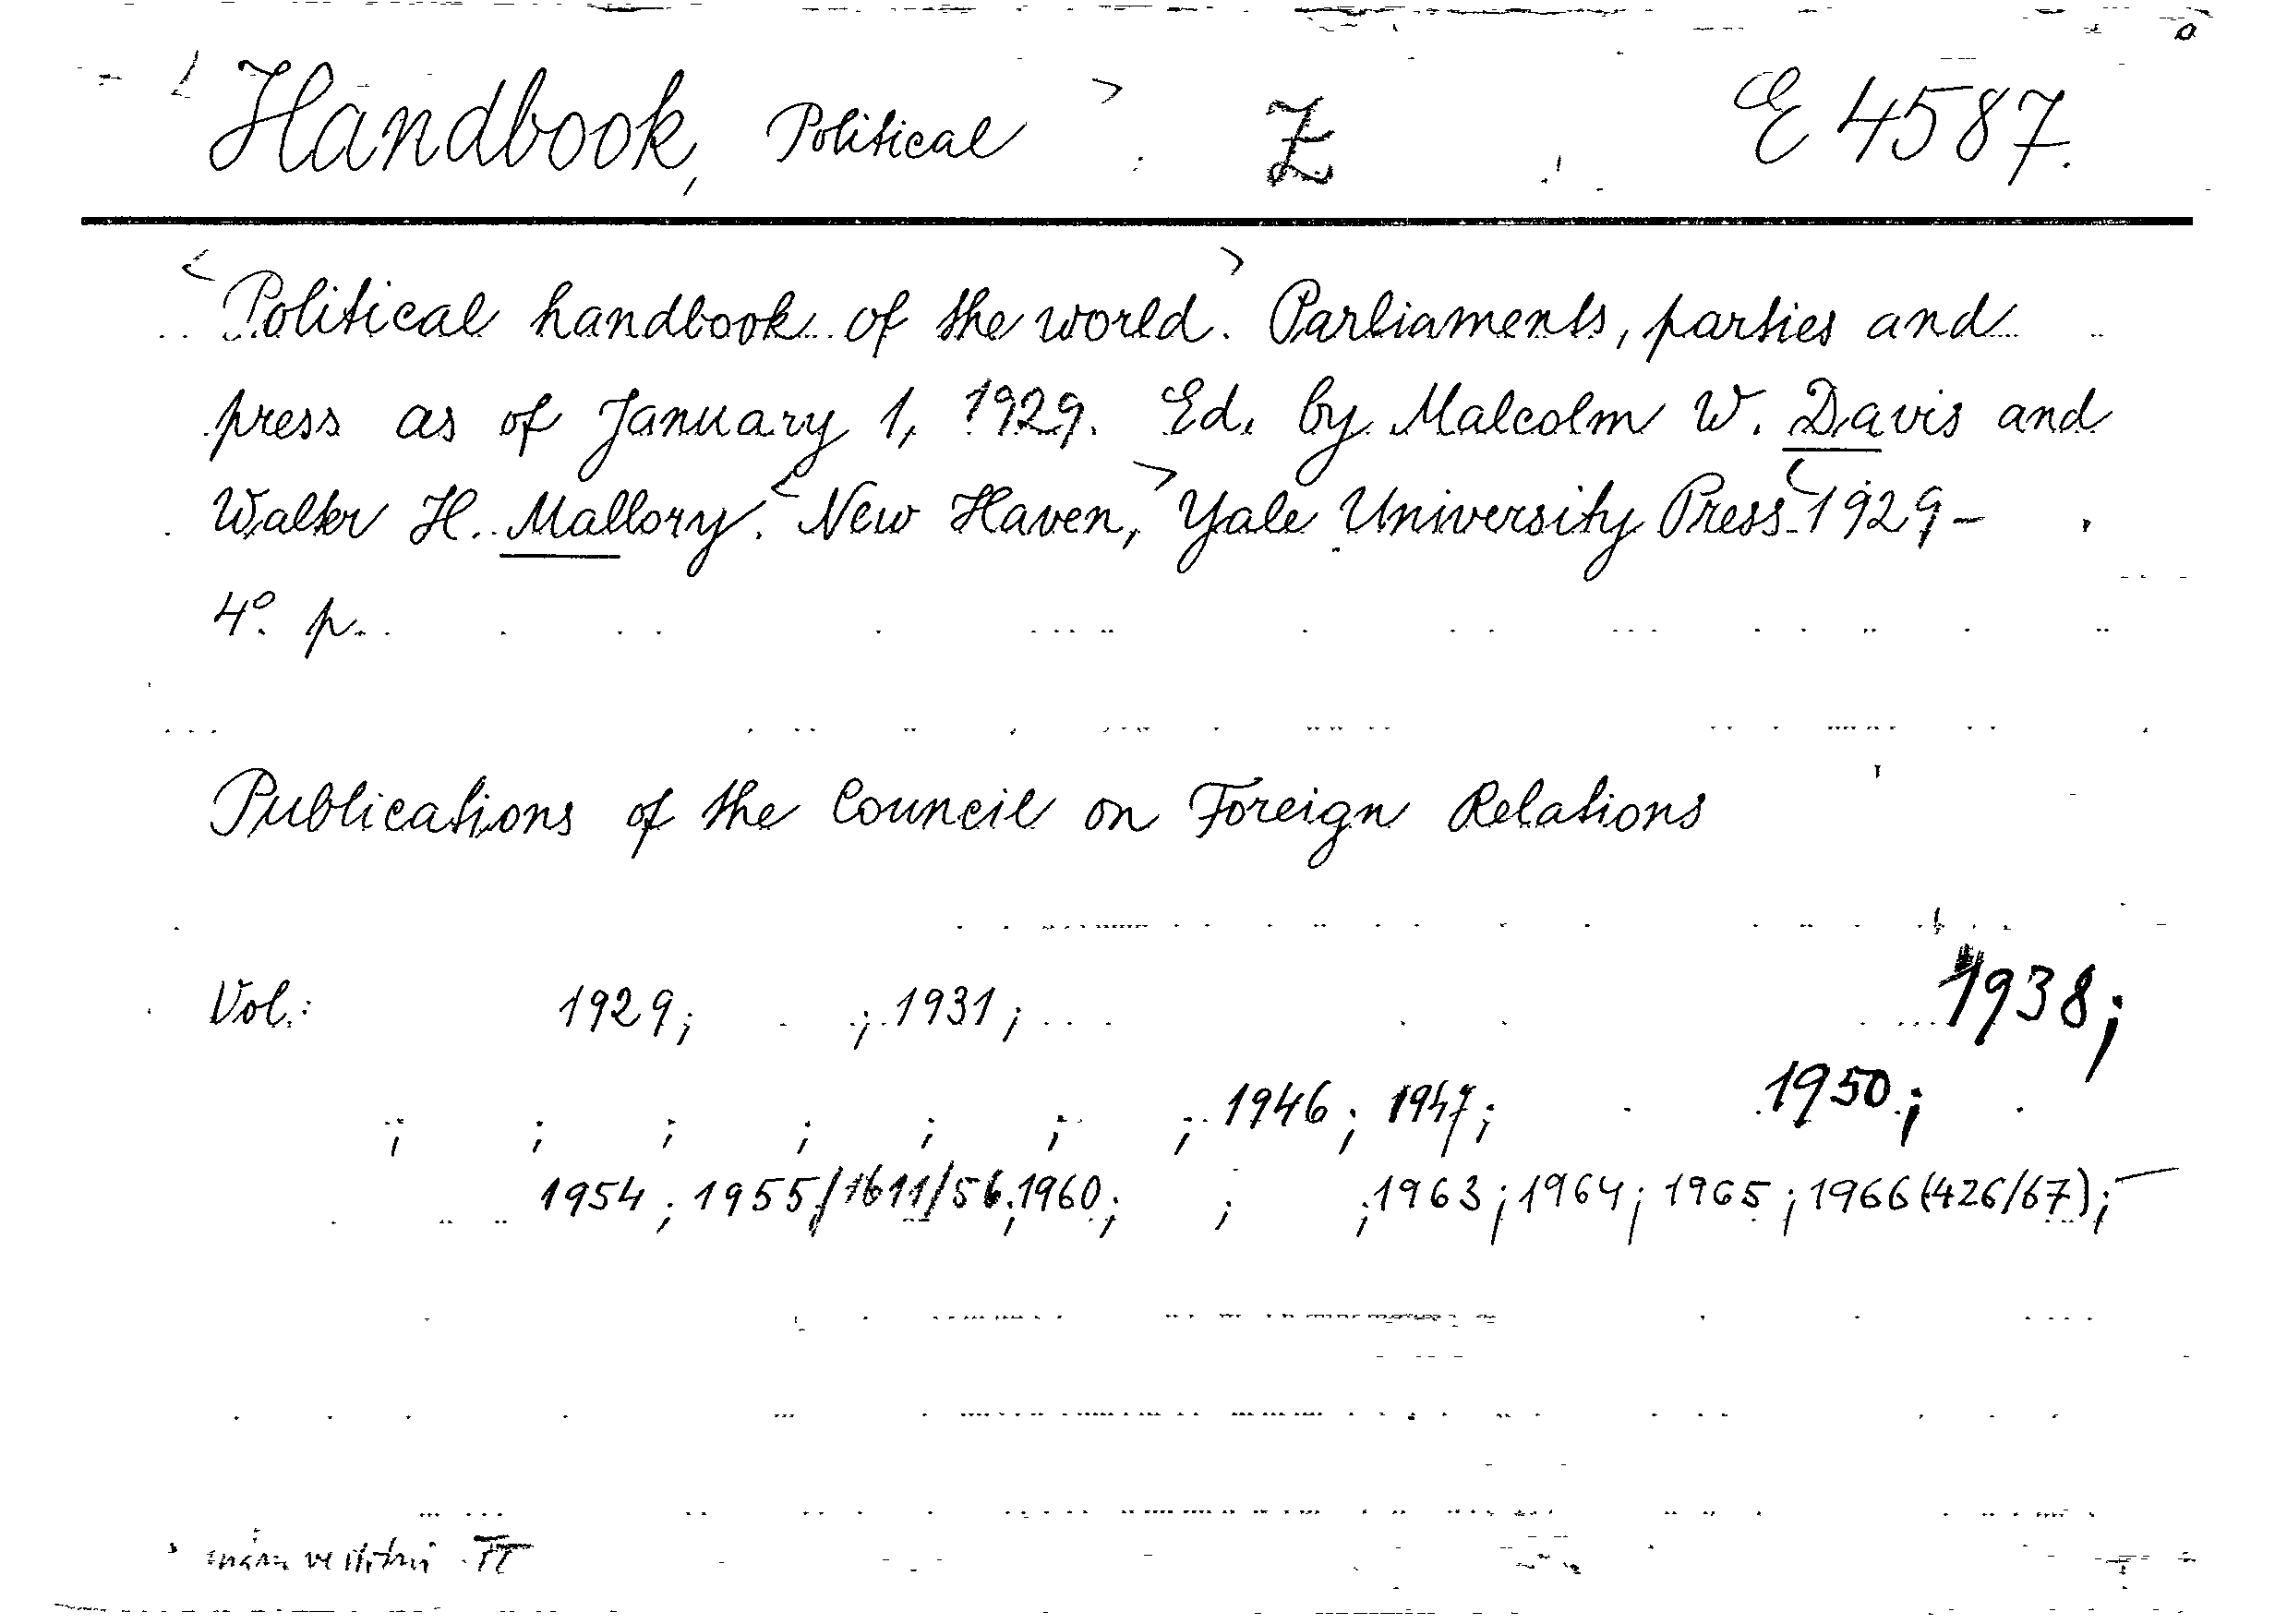 Handbook, Political Z E 4587.
Political handbook of the world. Parliaments, parties and
press as of January 1, 1929. Ed. by Malcolm W. Davis and
Walter H. Mallory. New Haven, Yale University Press 1929-
4°. p.
Publications of the Council on Foreign Relations
Vol.: 1929; ; 1931; 1938;
; ; ; ; ; ; ; 1946; 1947; 1950;
1954; 1955/1611/56; 1960; ; ; 1963; 1964; 1965; 1966 (426/67);